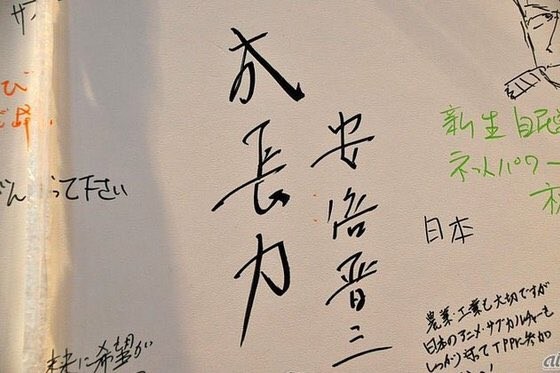 成長力
安倍晋三
新生自民
ネットパワー
日本
って下さい
農業・工業も大切ですが
日本のアニメ・サブカルチャーも
しっかり守ってTPPに参加
未来に希望が